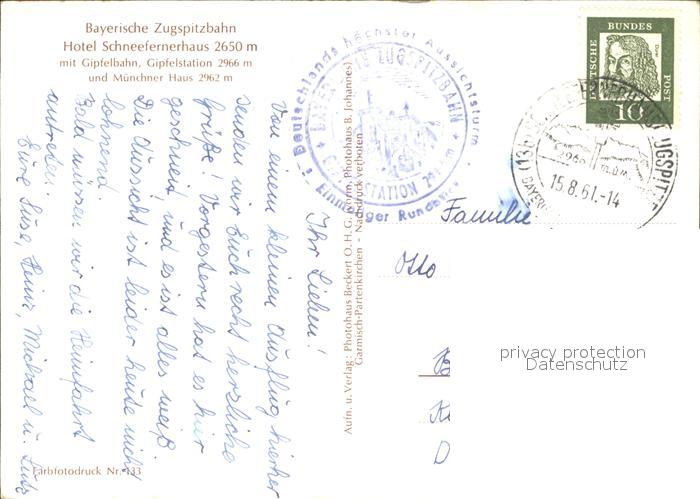 Bayerische Zugspitzbahn
Hotel Schneefernerhaus 2650 m
mit Gipfelbahn, Gipfelstation 2966 m
und Münchner Haus 2962 m
Ihr Lieben!
Von einem kleinen Ausflug hierher
senden wir Euch recht herzliche
Grüße! Vorgestern hat es hier
geschneit und es ist alles weiß.
Die Aussicht ist leider heute nicht
lohnend.
Bald müssen wir die Heimfahrt
antreten.
Eure Suse, Heinz, Michael u. Lutz
Farbfotodruck Nr. 133
Aufn. u. Verlag: Photohaus Beckert O.H.G. (vorm. Photohaus B. Johannes)
Garmisch-Partenkirchen - Nachdruck verboten
Deutschlands höchster Aussichtsturm
ZUGSPITZBAHN
Rundblick
DEUTSCHE
BUNDES
POST
Dürer
10
ZUGSPITZE
2960 m ü. M.
15.8.61.-14
Familie
Otto
B
K
D
privacy protection
Datenschutz